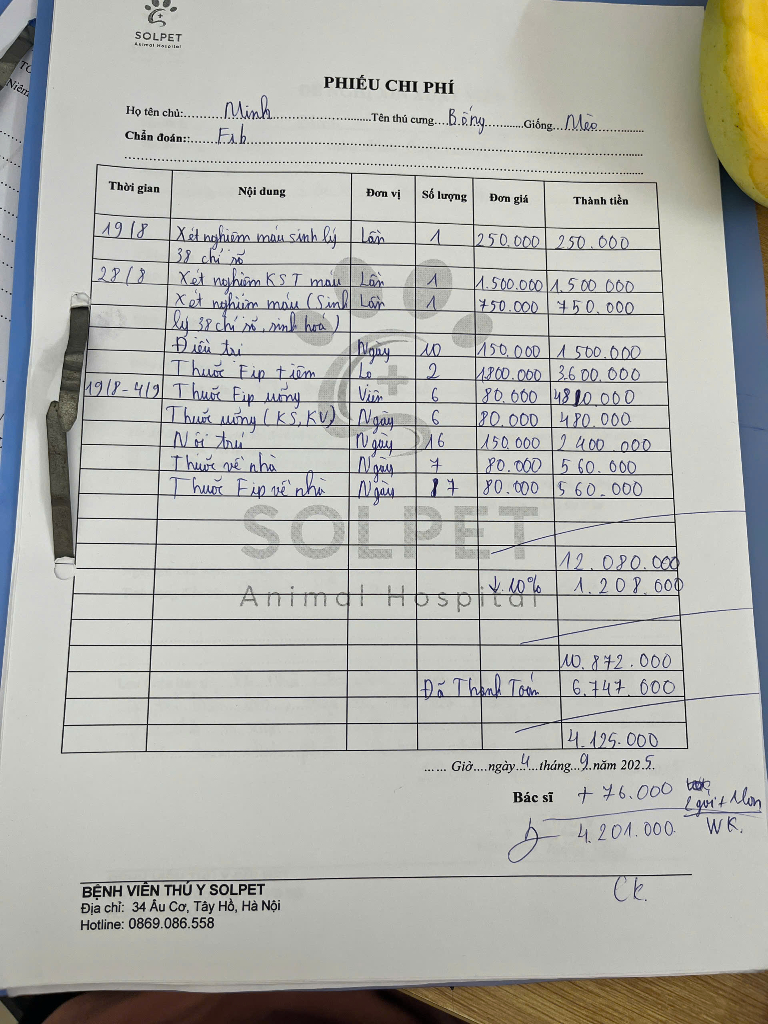 SOLPET
Animal Hospital
PHIẾU CHI PHÍ
Họ tên chủ:......Minh......Tên thú cưng...Bống......Giống...Mèo......
Chẩn đoán::......Fib......
Thời gian Nội dung Đơn vị Số lượng Đơn giá Thành tiền
19/8 Xét nghiệm máu sinh lý Lần 1 250.000 250.000
38 chỉ số
28/8 Xét nghiệm KST máu Lần 1 1.500.000 1.500 000
Xét nghiệm máu (Sinh Lần 1 750.000 750.000
lý 38 chỉ số, sinh hoá)
Điều trị Ngày 10 150.000 1 500.000
Thuốc Fip tiêm Lọ 2 1800.000 3.600.000
19/8-4/9 Thuốc Fip uống Viên 6 80.000 480.000
Thuốc uống (KS, KV) Ngày 6 80.000 480.000
Nội trú Ngày 16 150.000 2 400 000
Thuốc về nhà Ngày 7 80.000 560.000
Thuốc Fip về nhà Ngày 7 80.000 560.000
SOLPET
Animal Hospital
12.080.000
↓ 10% 1.208.000
10.872.000
Đã Thanh Toán 6.747.000
4.125.000
...... Giờ....ngày 4 tháng 9 năm 2025
Bác sĩ + 76.000 2 gói + 1 lon
4.201.000 WK.
Ck.
BỆNH VIỆN THÚ Y SOLPET
Địa chỉ: 34 Âu Cơ, Tây Hồ, Hà Nội
Hotline: 0869.086.558